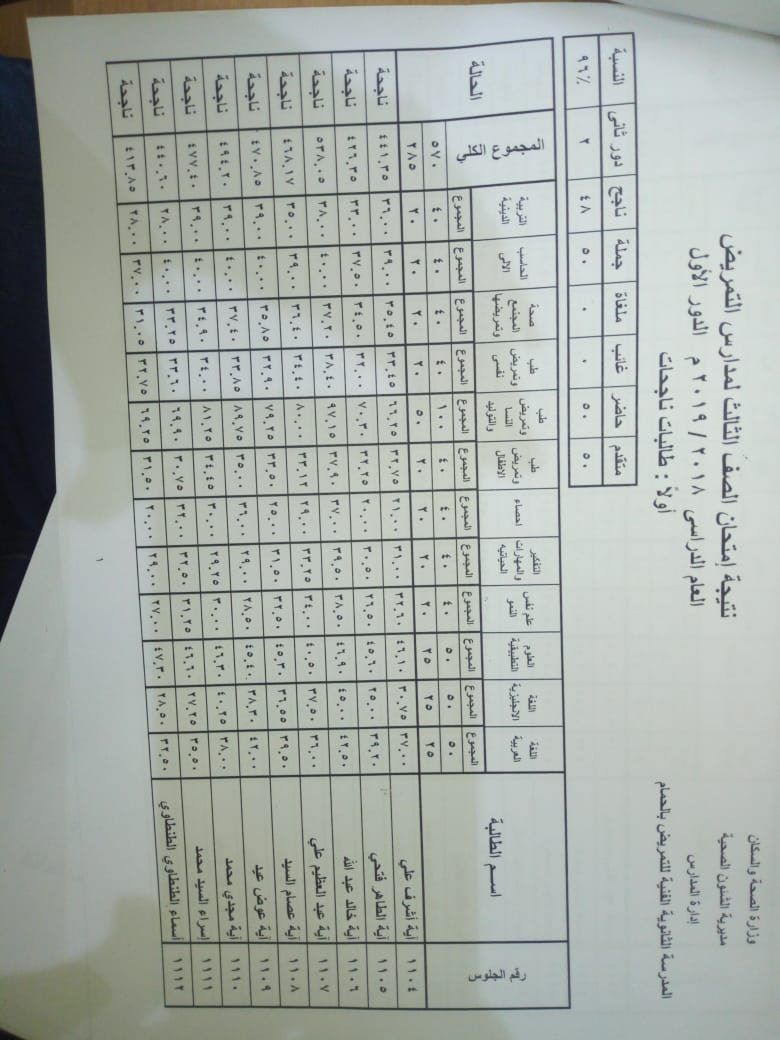 وزارة الصحة والسكان
مديرية الشئون الصحية
إدارة المدارس
المدرسة الثانوية الفنية للتمريض بالحمام
نتيجة إمتحان الصف الثالث لمدارس التمريض
العام الدراسى ٢٠١٨ / ٢٠١٩ م الدور الأول
أولاً : طالبات ناجحات
متقدم حاضر غائب ملغاة جملة ناجح دور ثانى النسبة
٥٠ ٥٠ ٠ ٠ ٥٠ ٤٨ ٢ ٩٦%
اسم الطالبة اللغة العربية اللغة الانجليزية العلوم التطبيقية علم نفس النمو التفكير والمهارات الحياتيه احصاء طب وتمريض الاطفال طب وتمريض النسا والتوليد طب وتمريض نفسى صحة المجتمع وتمريضها الحاسب الالى التربية الدينية المجموع الكلى الحالة
المجموع المجموع المجموع المجموع المجموع المجموع المجموع المجموع المجموع المجموع المجموع المجموع
٥٠ ٥٠ ٥٠ ٤٠ ٤٠ ٤٠ ٤٠ ١٠٠ ٤٠ ٤٠ ٤٠ ٤٠ ٥٧٠
٢٥ ٢٥ ٢٥ ٢٠ ٢٠ ٢٠ ٢٠ ٥٠ ٢٠ ٢٠ ٢٠ ٢٠ ٢٨٥
١١٠٤ آية أشرف علي ٣٧.٠٠ ٣٠.٧٥ ٤٦.١٠ ٣٢.٦٠ ٣١.٠٠ ٢١.٠٠ ٣٢.٧٥ ٦٦.٢٥ ٣٣.٤٥ ٣٥.٤٥ ٣٩.٠٠ ٣٦.٠٠ ٤٤١.٣٥ ناجحة
١١٠٥ آية الطاهر فتحي ٣٩.٢٠ ٢٥.٠٠ ٤٥.٦٠ ٢٦.٥٠ ٣٠.٥٠ ٢٠.٠٠ ٣٢.٢٥ ٧٠.٣٠ ٣٢.٠٠ ٣٤.٥٠ ٣٧.٥٠ ٣٣.٠٠ ٤٢٦.٣٥ ناجحة
١١٠٦ آية خالد عبد الله ٤٢.٥٠ ٤٥.٠٠ ٤٦.٩٠ ٣٨.٥٠ ٣٩.٥٠ ٣٧.٠٠ ٣٧.٩٠ ٩٧.١٥ ٣٨.٤٠ ٣٧.٢٠ ٤٠.٠٠ ٣٨.٠٠ ٥٣٨.٠٥ ناجحة
١١٠٧ آية عبد العظيم علي ٣٦.٠٠ ٣٧.٥٠ ٤٠.٥٠ ٣٤.٠٠ ٣٣.٢٥ ٢٩.٠٠ ٣٣.١٢ ٨٠.٠٠ ٣٤.٤٠ ٣٦.٤٠ ٣٩.٠٠ ٣٥.٠٠ ٤٦٨.١٧ ناجحة
١١٠٨ آية عصام السيد ٣٩.٥٠ ٣٦.٥٥ ٤٥.٣٠ ٣٢.٥٠ ٣١.٥٠ ٢٥.٠٠ ٣٣.٥٠ ٧٩.٢٥ ٣٢.٩٠ ٣٥.٨٥ ٤٠.٠٠ ٣٩.٠٠ ٤٧٠.٨٥ ناجحة
١١٠٩ آية عوض عيد ٤٢.٠٠ ٣٨.٣٠ ٤٥.٤٠ ٢٨.٥٠ ٢٩.٠٠ ٣٦.٠٠ ٣٥.٠٠ ٨٩.٧٥ ٣٣.٨٥ ٣٧.٤٠ ٤٠.٠٠ ٣٩.٠٠ ٤٩٤.٢٠ ناجحة
١١١٠ آية مجدي محمد ٣٨.٠٠ ٤٠.٢٥ ٤٦.٣٠ ٣٠.٠٠ ٢٩.٢٥ ٣٠.٠٠ ٣٤.٤٥ ٨١.٢٥ ٣٤.٠٠ ٣٤.٩٠ ٤٠.٠٠ ٣٩.٠٠ ٤٧٧.٤٠ ناجحة
١١١١ إسراء السيد محمد ٣٥.٥٠ ٢٧.٢٥ ٤٦.٦٠ ٣١.٢٥ ٣٢.٥٠ ٣٢.٠٠ ٣٠.٧٥ ٦٩.٩٠ ٣٣.٦٠ ٣٣.٢٥ ٤٠.٠٠ ٢٨.٠٠ ٤٤٠.٦٠ ناجحة
١١١٢ أسماء الطنطاوي الطنطاوي ٣٢.٥٠ ٢٨.٥٠ ٤٧.٣٠ ٢٧.٠٠ ٢٩.٠٠ ٢٠.٠٠ ٣١.٥٠ ٦٩.٢٥ ٣٢.٧٥ ٣١.٠٥ ٣٧.٠٠ ٢٨.٠٠ ٤١٣.٨٥ ناجحة
١